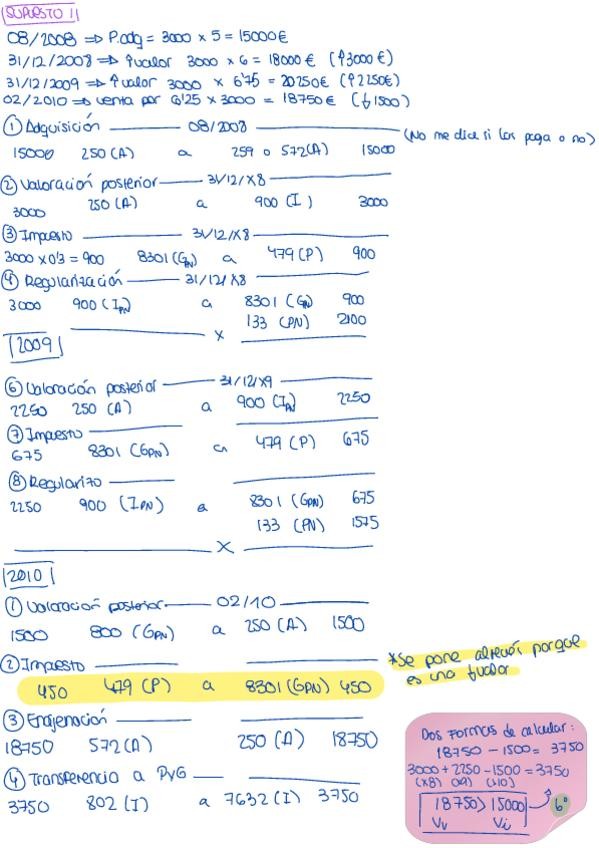 SUPUESTO 1
08/2008 ⇒ P.adq = 3000 x 5 = 15000€
31/12/2008 ⇒ ↑valor 3000 x 6 = 18000€ (↑3000€)
31/12/2009 ⇒ ↑valor 3000 x 6'75 = 20250€ (↑2250€)
02/2010 ⇒ venta por 6'25 x 3000 = 18750€ (↓1500)
① Adquisición 08/2008
(No me dice si los paga o no)
15000 250 (A) a 259 o 572(A) 15000
② Valoración posterior 31/12/X8
3000 250 (A) a 900 (I) 3000
③ Impuesto 31/12/X8
3000 x 0'3 = 900 8301 (GPN) a 479 (P) 900
④ Regularización 31/12/X8
3000 900 (IPN) a 8301 (GPN) 900
133 (PN) 2100
X
2009
⑥ Valoración posterior 31/12/X9
2250 250 (A) a 900 (IPN) 2250
⑦ Impuesto
675 8301 (GPN) a 479 (P) 675
⑧ Regularizo
2250 900 (IPN) a 8301 (GPN) 675
133 (PN) 1575
X
2010
① Valoración posterior 02/10
1500 800 (GPN) a 250 (A) 1500
② Impuesto
450 479 (P) a 8301 (GPN) 450
*Se pone al revés porque
es una ↓valor
③ Enajenación
18750 572 (A) 250 (A) 18750
④ Transferencia a PyG
3750 802 (I) a 7632 (I) 3750
Dos formas de calcular:
18750 - 1500 = 3750
3000 + 2250 - 1500 = 3750
(X8) (X9) (X10)
18750 > 15000 → Bº
Vv Vi